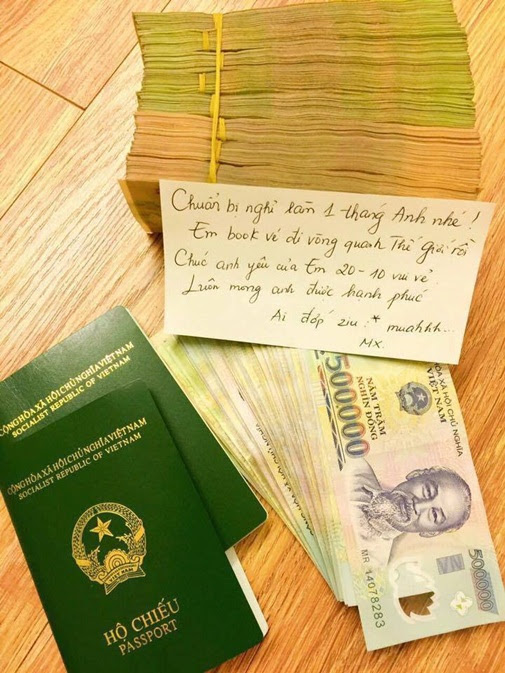 Chuẩn bị nghỉ làm 1 tháng Anh nhé !
Em book vé đi vòng quanh Thế giới rồi
Chúc anh yêu của Em 20-10 vui vẻ
Luôn mong anh được hạnh phúc
Ai đốp ziu :* muahhh...
MX.
CỘNG HÒA XÃ HỘI CHỦ NGHĨA VIỆT NAM
SOCIALIST REPUBLIC OF VIETNAM
CỘNG HÒA XÃ HỘI CHỦ NGHĨA VIỆT NAM
SOCIALIST REPUBLIC OF VIETNAM
HỘ CHIẾU
PASSPORT
500000
NĂM TRĂM
NGHÌN ĐỒNG
CỘNG HÒA XÃ HỘI CHỦ NGHĨA
VIỆT NAM
MR 14078283
500000